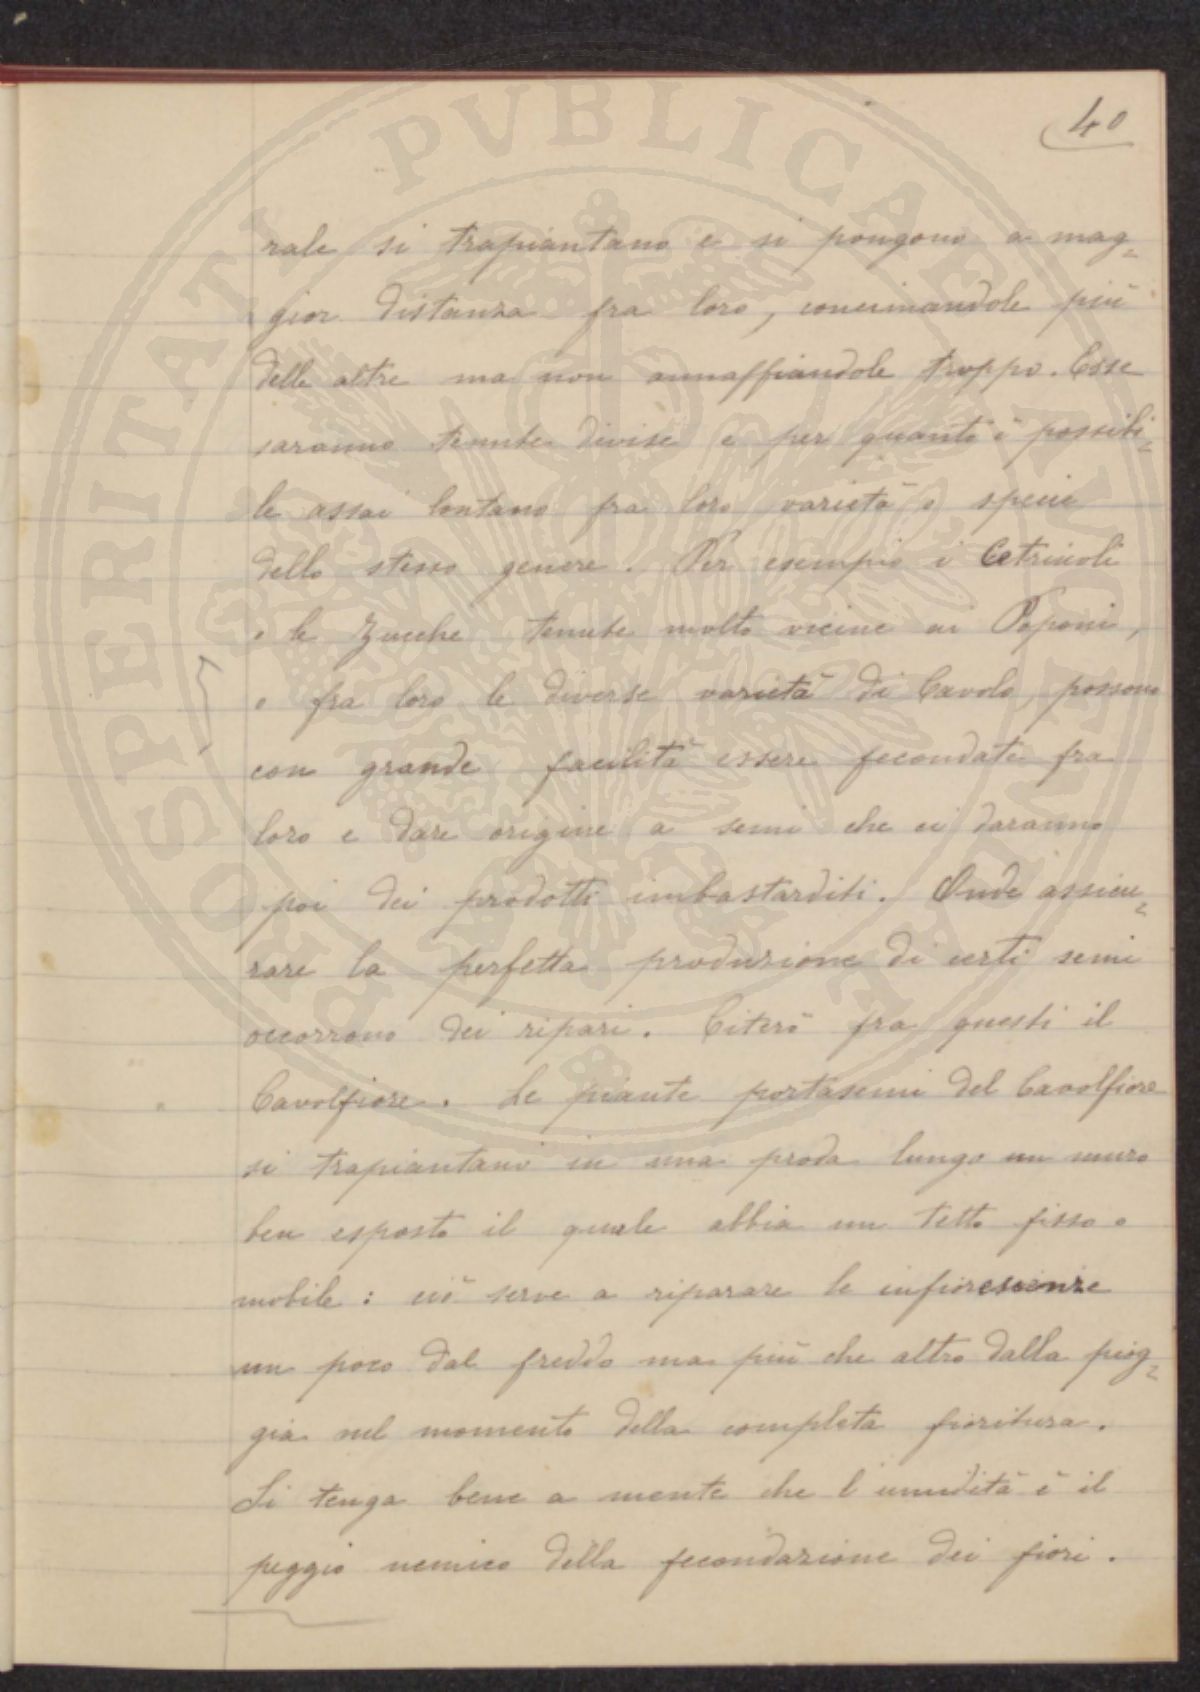 PROSPERITATI PVBLICAE AVGENDAE
40
rale si trapiantano e si pongono a mag=
gior distanza fra loro, concimandole più
delle altre ma non annaffiandole troppo. Esse
saranno tenute divise e per quanto è possibi=
le assai lontano fra loro varietà o specie
dello stesso genere. Per esempio i Cetriuoli
o le Zucche tenute molto vicine ai Poponi,
o fra loro le diverse varietà di Cavolo, possono
con grande facilità essere fecondate fra
loro e dare origine a semi che ci daranno
poi dei prodotti imbastarditi. Onde assicu=
rare la perfetta produzione di certi semi
occorrono dei ripari. Citerò fra questi il
Cavolfiore. Le piante portasemi del Cavolfiore
si trapiantano in una proda lungo un muro
ben esposto il quale abbia un tetto fisso o
mobile: ciò serve a riparare le infiorescenze
un poco dal freddo ma più che altro dalla piog=
gia nel momento della completa fioritura.
Si tenga bene a mente che l'umidità è il
peggio nemico della fecondazione dei fiori.